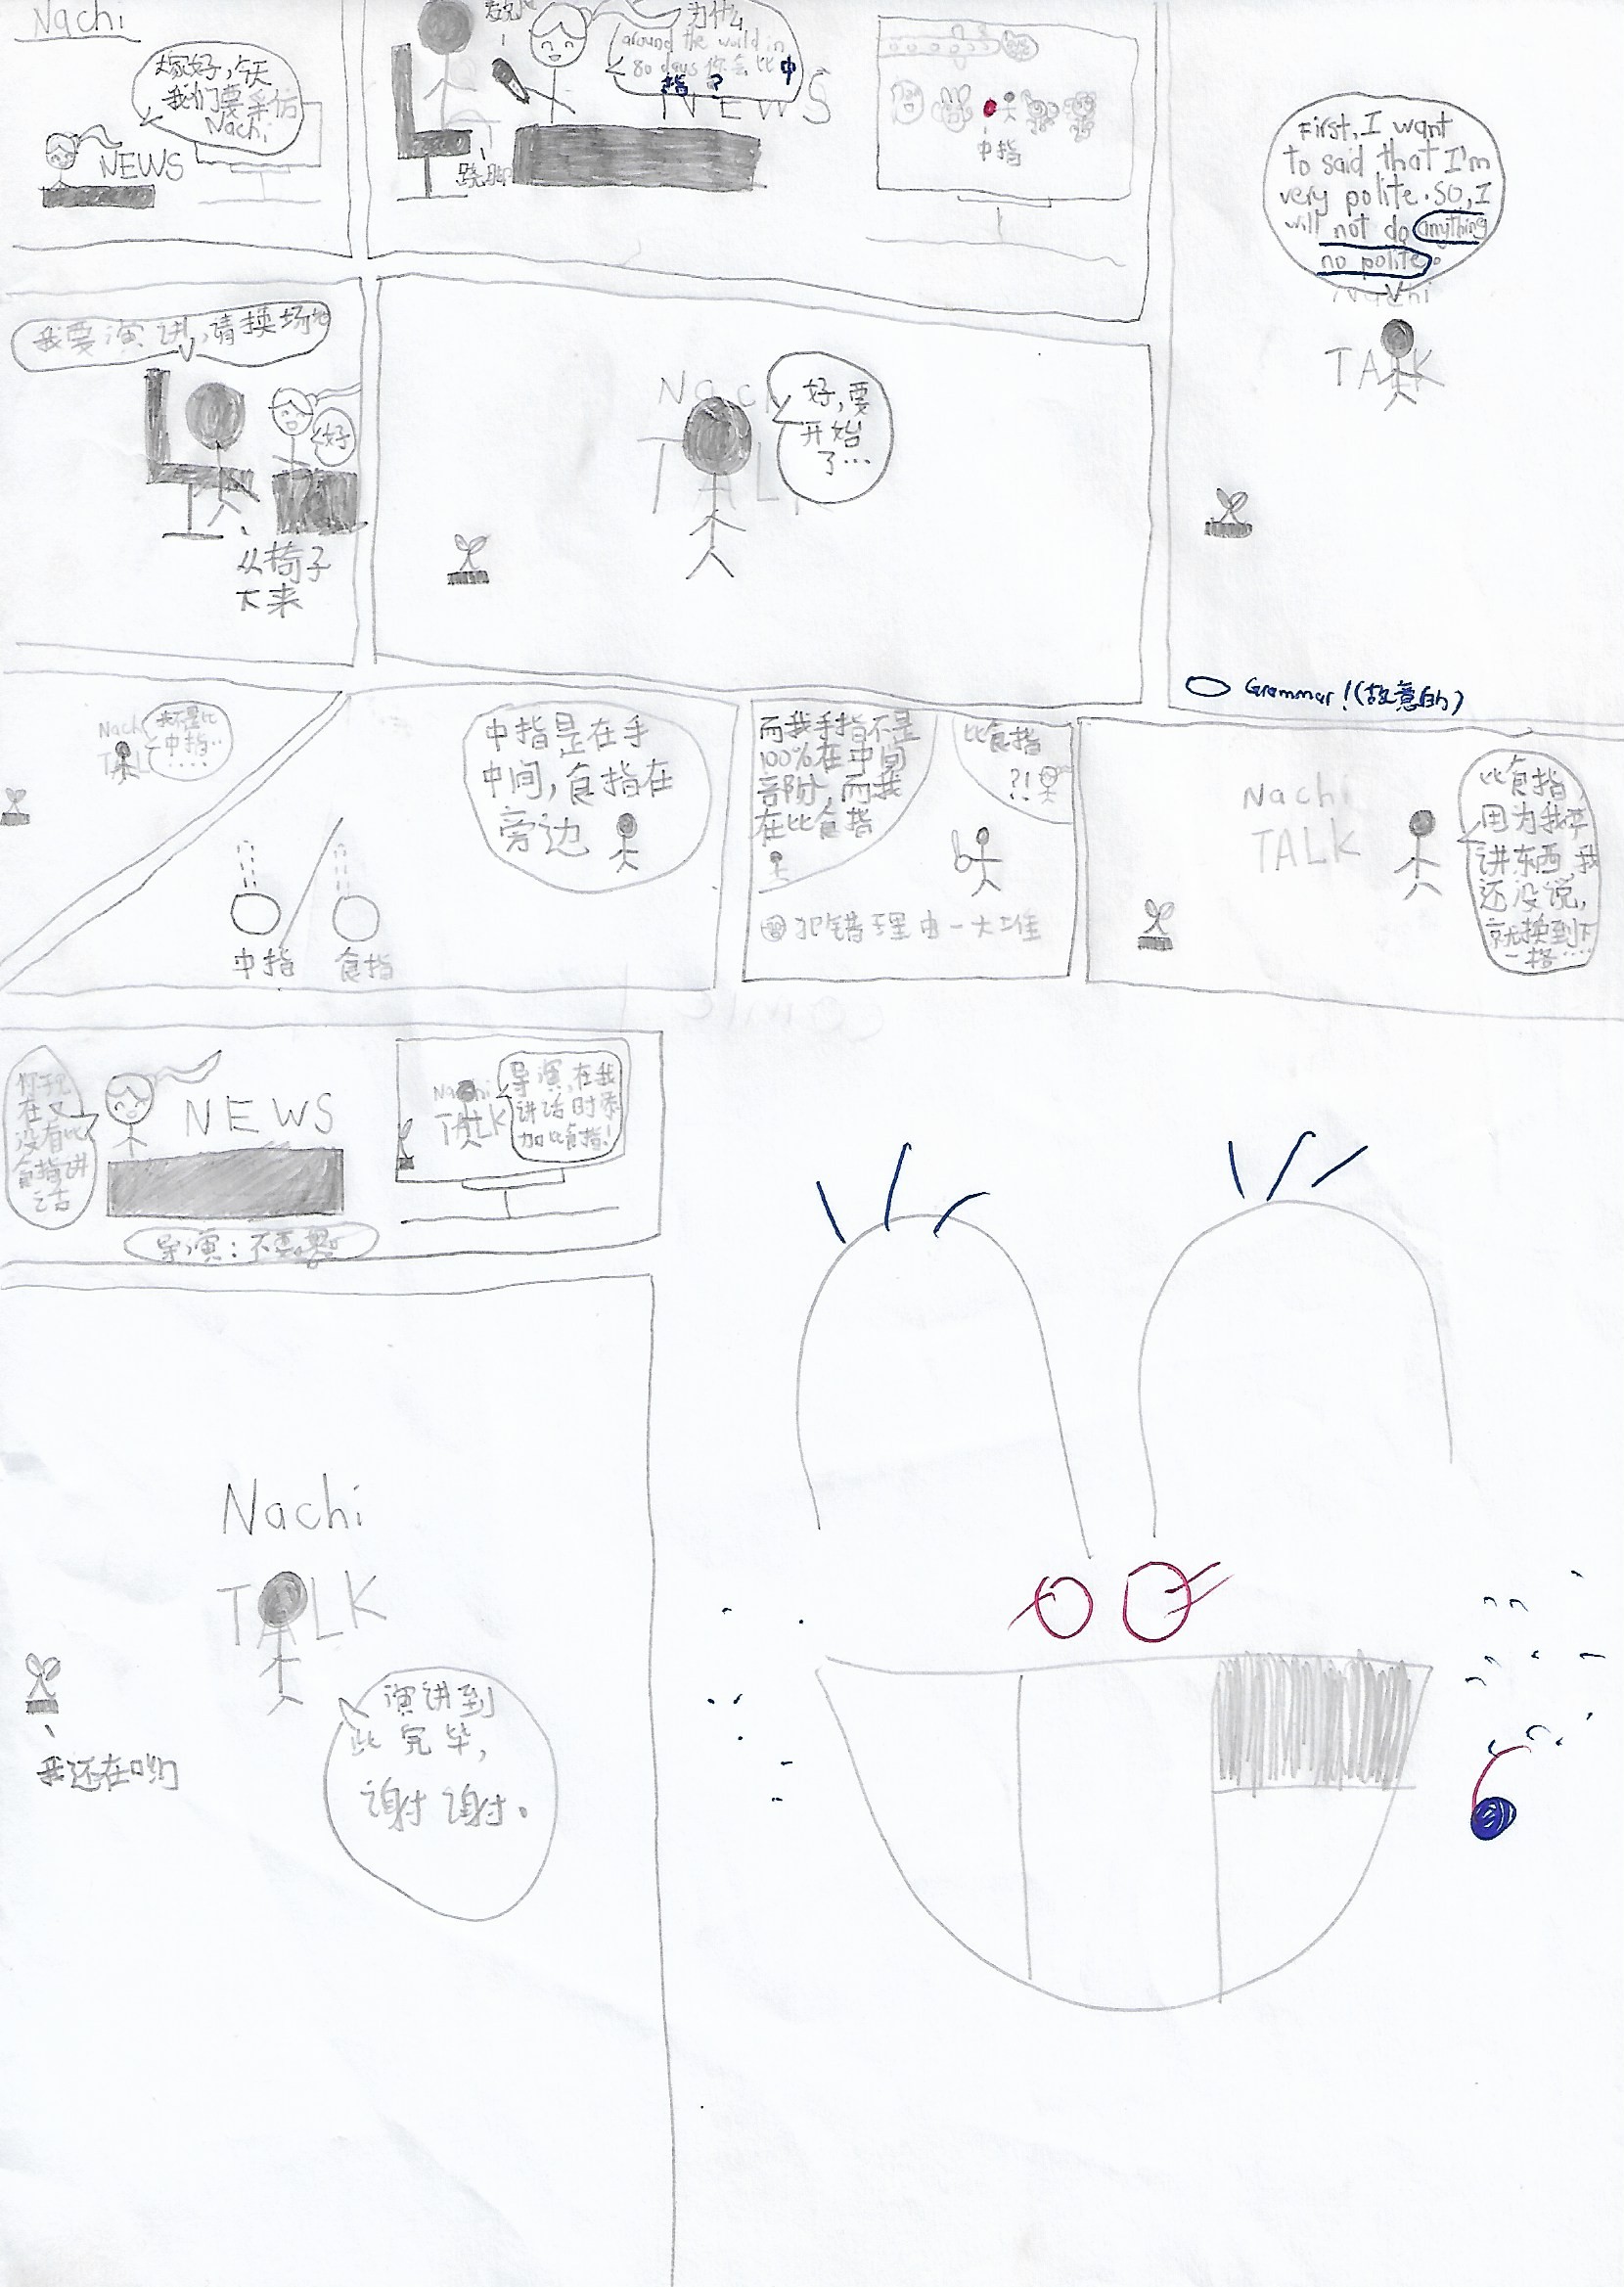 Nachi
大家好,今天
我们要采仿
Nachi
NEWS
为什么
around the world in
80 days 你会比中
指?
NEWS
跷脚
中指
First, I want
to said that I'm
very polite. So, I
will not do anything
no polite.
Nachi
TALK
Grammar!(故意的)
我要演讲,请换场地
好
从椅子
下来
Nach
TALK
好,要
开始
了...
Nachi
TAL
我不是比
中指..
....
中指是在手
中间,食指在
旁边
中指
食指
而我手指不是
100%在中间
部分,而我
在比食指
比食指
?!
犯错理由一大堆
Nachi
TALK
比食指,
因为我要
讲东西,我
还没说,
就换到下
一格....
你现
在又
没有比
食指讲
话
NEWS
Nachi
TALK
导演,在我
讲话时添
加比食指!
导演:不要
Nachi
TALK
我还在哟
演讲到
此完毕,
谢谢。